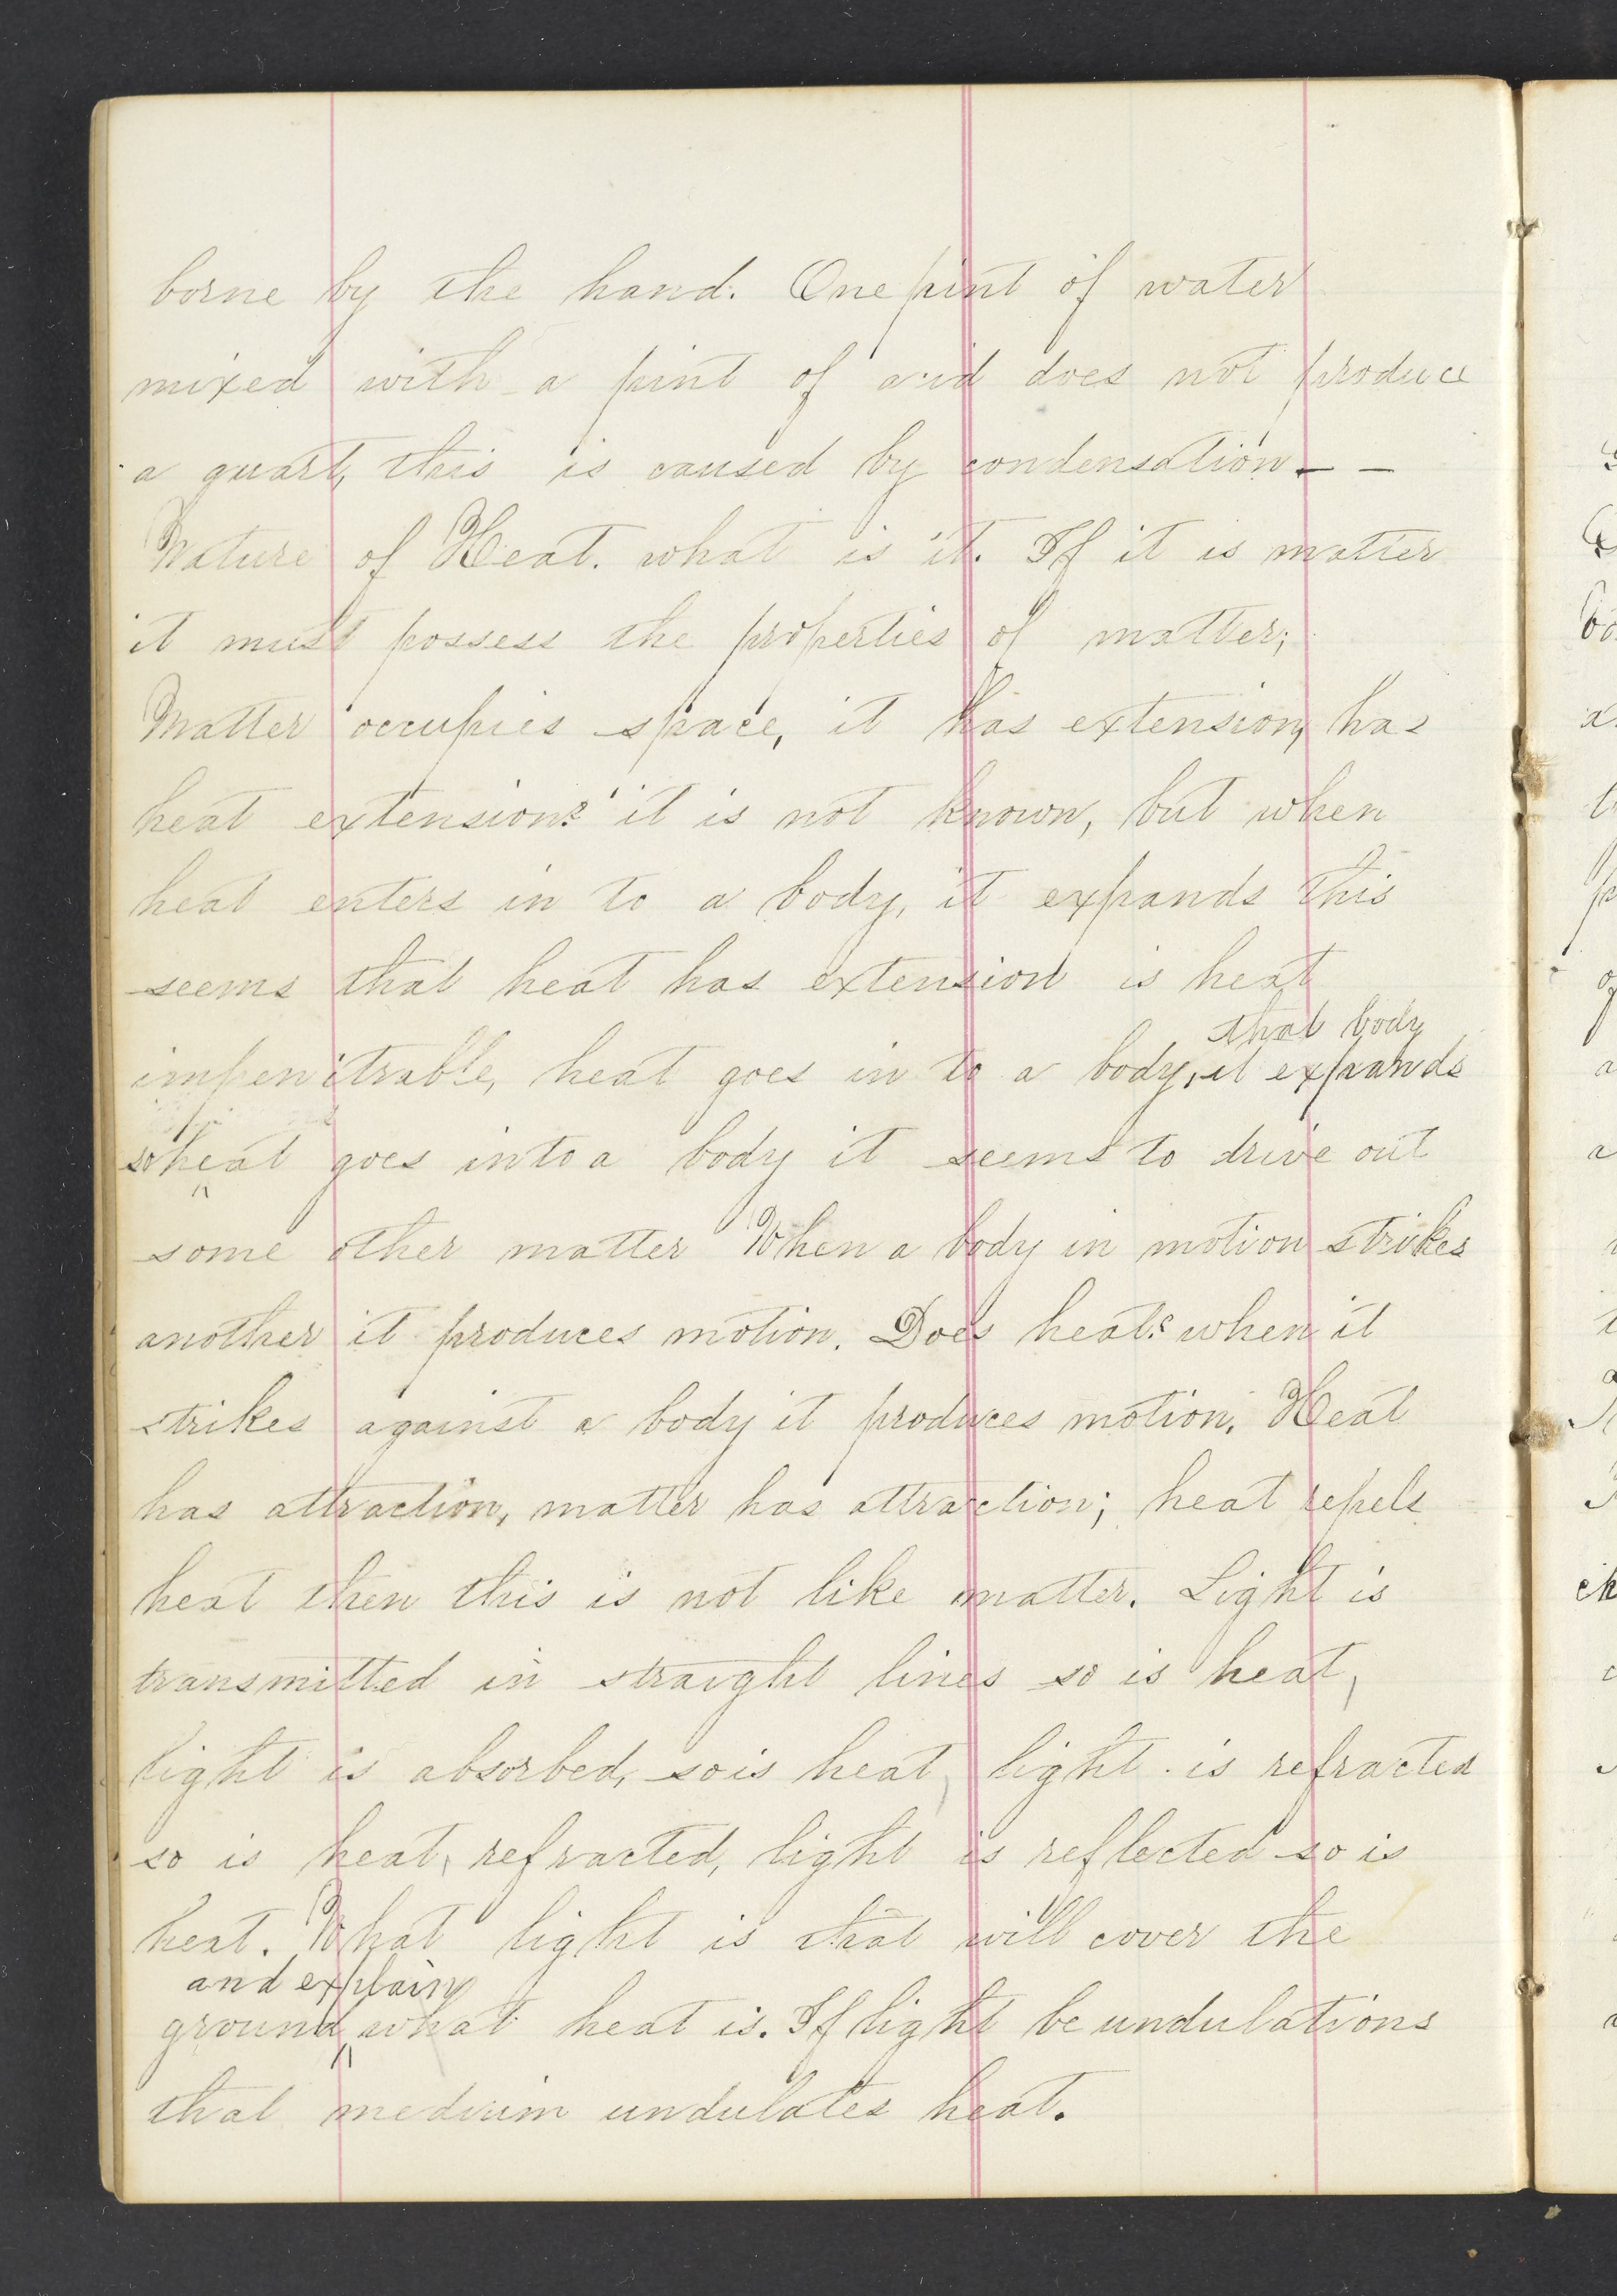 borne by the hand. One pint of water
mixed with a pint of acid does not produce
a quart, this is caused by condensation - -
Nature of Heat. what is it. If it is matter
it must possess the properties of matter;
Matter occupies space, it has extension, has
heat extension? it is not known, but when
heat enters in to a body, it expands this
seems that heat has extension is heat
that body
impenitrable, heat goes in to a body, it expands
so heat goes into a body it seems to drive out
some other matter When a body in motion strikes
another it produces motion. Does heat? when it
strikes against a body it produces motion. Heat
has attraction, matter has attraction; heat repels
heat then this is not like matter. Light is
transmitted in straight lines so is heat,
light is absorbed, so is heat, light is refracted
so is heat, refracted, light is reflected so is
heat. What light is that will cover the
and explain
ground what heat is. If light be undulations
that medium undulates heat.